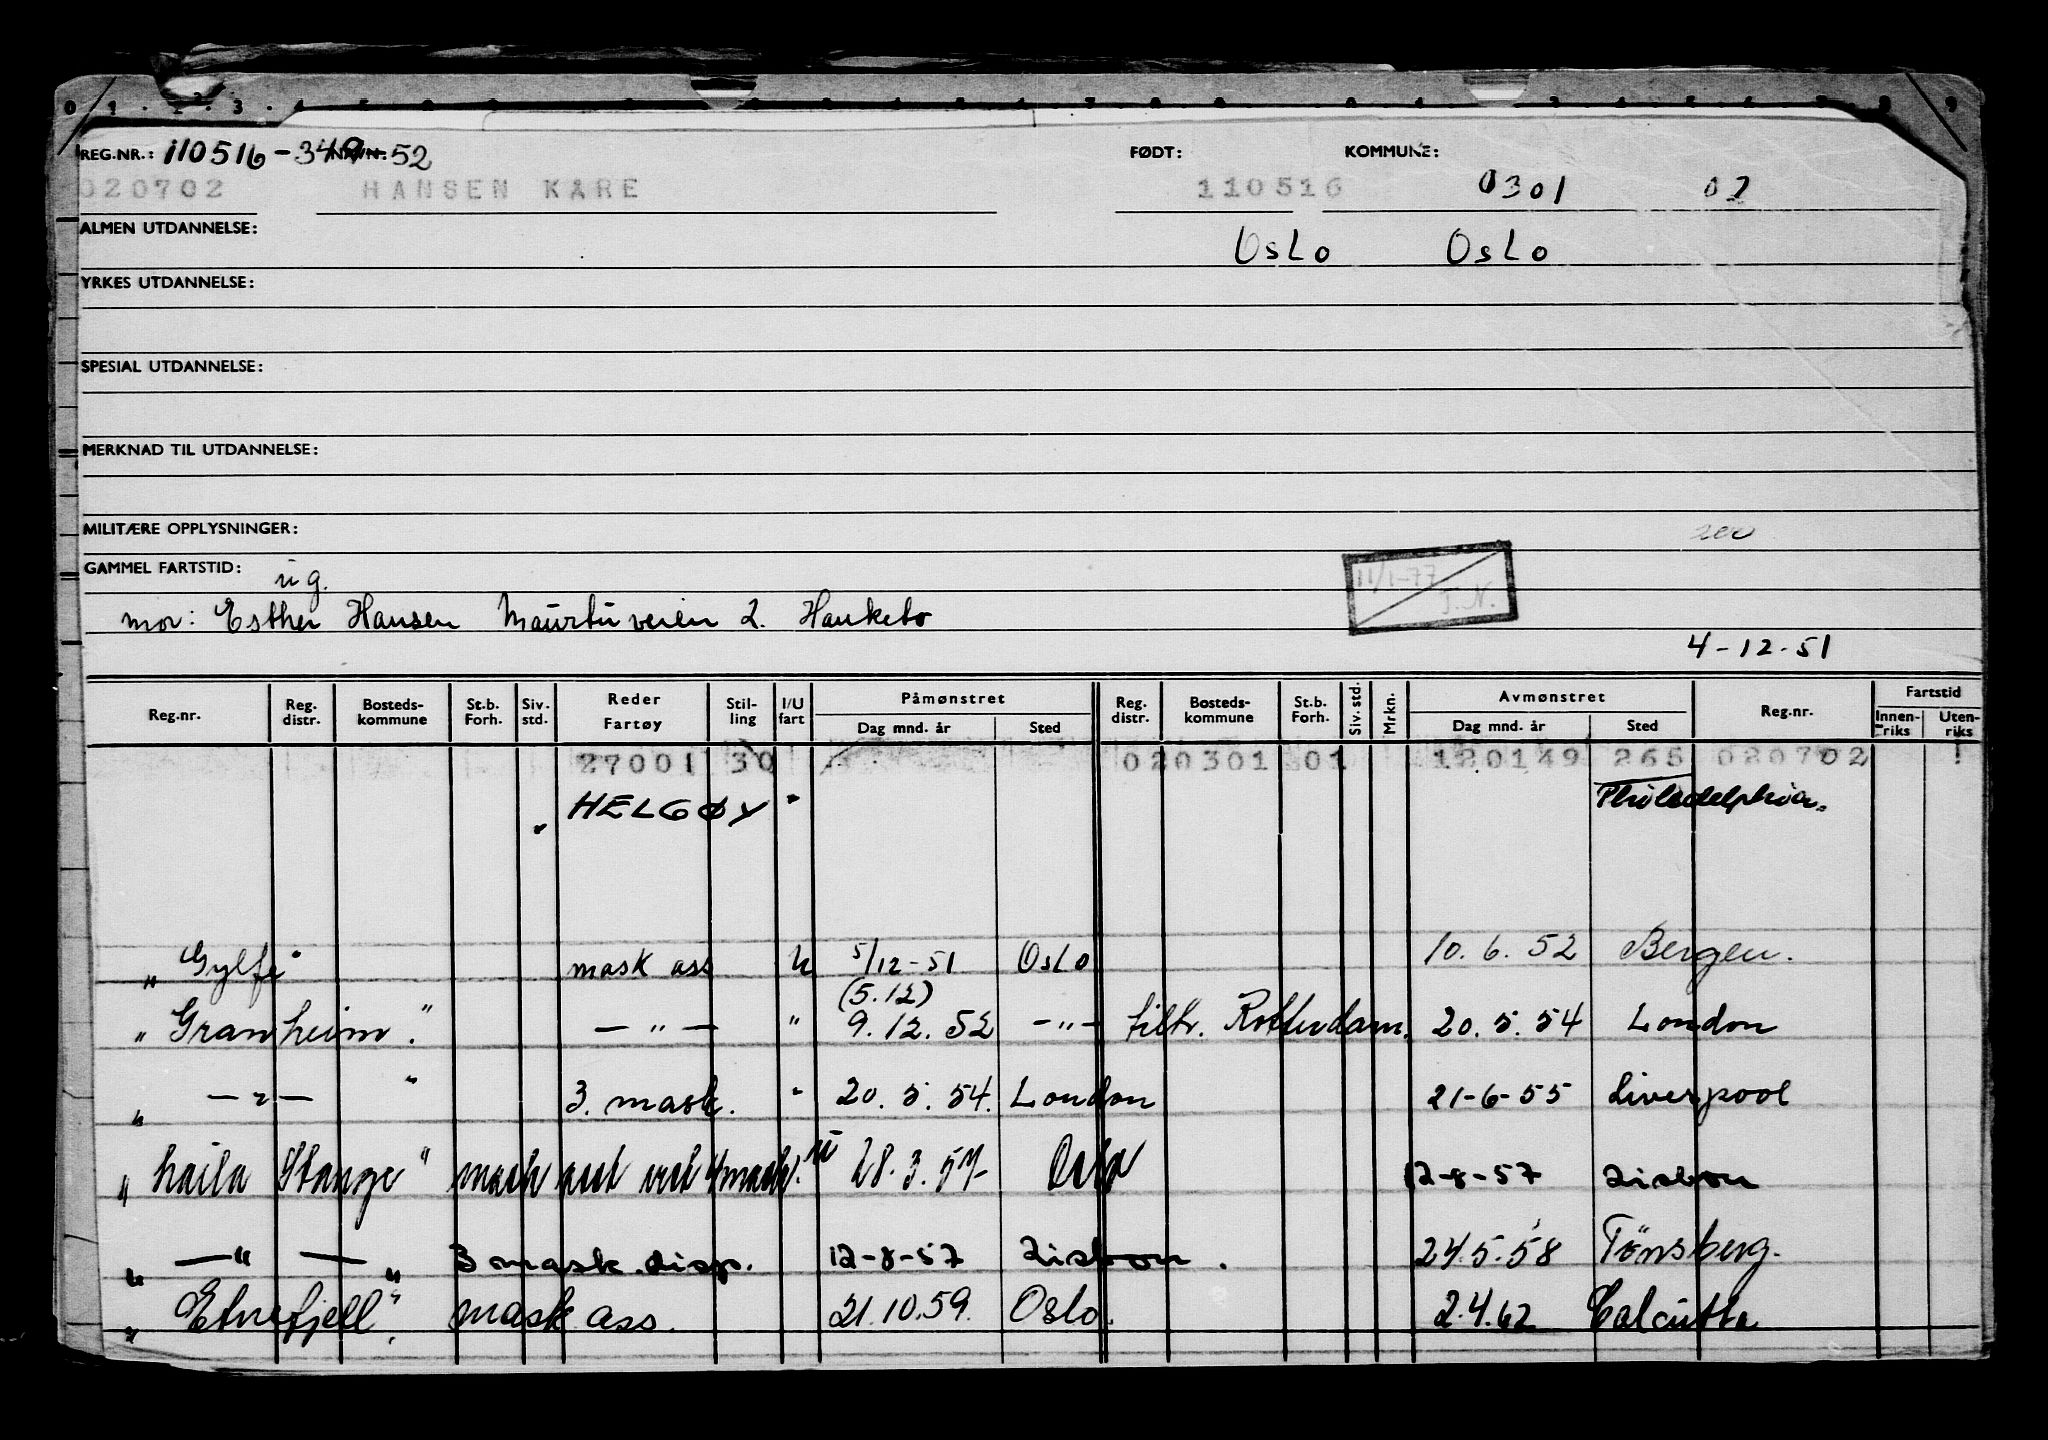 REG.NR.: 110516-349-52 NAVN: FØDT: KOMMUNE:
020702 HANSEN KARE 110516 0301 02
ALMEN UTDANNELSE: Oslo Oslo
YRKES UTDANNELSE:
SPESIAL UTDANNELSE:
MERKNAD TIL UTDANNELSE:
MILITÆRE OPPLYSNINGER:
GAMMEL FARTSTID: ug.
11/1-77
T.N.
mor: Esther Hansen Maurtuveien 2. Hauketo
4-12-51
Reg.nr. Reg. distr. Bosteds-kommune St.b. Forh. Siv. std. Reder Fartøy Stil-ling I/U fart Påmønstret Dag mnd. år Sted Reg. distr. Bosteds-kommune St.b. Forh. Siv. std. Mrkn. Avmønstret Dag mnd. år Sted Reg.nr. Fartstid Innen-riks Uten-riks
27001 30 020301 01 120149 265 020702
" HELGØY " Philadelphia
"Gylfe" mask ass U 5/12-51 Oslo 10.6.52 Bergen.
(5.12)
"Granheim." — " — " 9.12.52 —"— tiltr. Rotterdam. 20.5.54 London
" — " — " 3. mask. " 20.5.54. London 21-6-55 Liverpool
"Laila Stange" mask ass ved 4 mask. U 28.3.57 Oslo 12-8-57 Lisbon
" — " — " 3 mask. disp. 12-8-57 Lisbon. 24.5.58 Tönsberg.
"Etnefjell". mask ass. 21.10.59. Oslo. 2.4.62 Calcutta